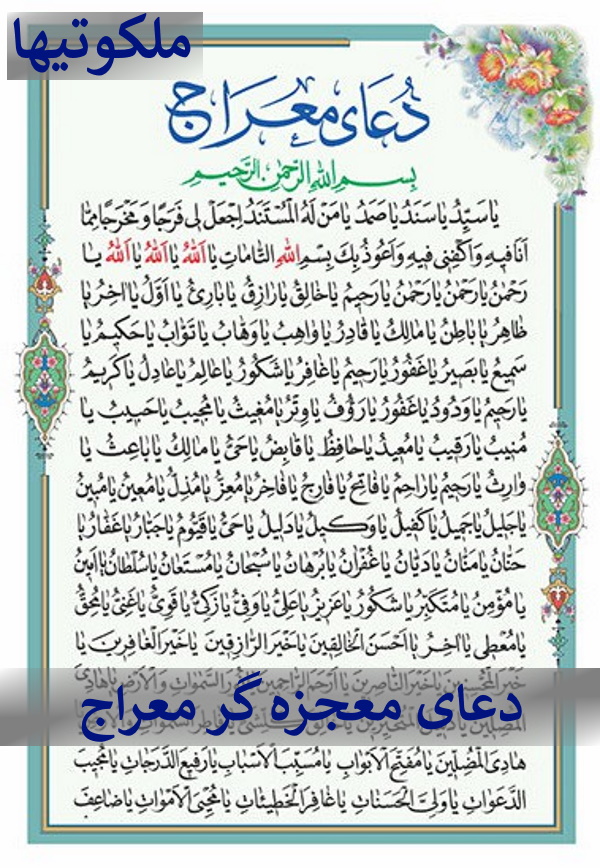 ملکوتیها
دُعای معراج
بِسمِ اللهِ الرَّحمٰنِ الرَّحیمِ
یٰا سَیِّدُ یٰا سَنَدُ یٰا صَمَدُ یٰا مَنْ لَهُ الْمُسْتَنَدُ اِجْعَلْ لی فَرَجًا وَ مَخْرَجًا مِمّٰا
اَنَا فیهِ وَ اَکْفِنی فیهِ وَ اَعُوذُ بِكَ بِسْمِ اللهِ التّٰامّٰاتِ یٰا اَللهُ یٰا اَللهُ یٰا اَللهُ یٰا
رَحْمٰنُ یٰا رَحْمٰنُ یٰا رَحْمٰنُ یٰا رَحیمُ یٰا خٰالِقُ یٰا رٰازِقُ یٰا بٰارِئُ یٰا اَوَّلُ یٰا اٰخِرُ یٰا
ظٰاهِرُ یٰا بٰاطِنُ یٰا مٰالِكُ یٰا قٰادِرُ یٰا وٰاهِبُ یٰا وَهّٰابُ یٰا تَوّٰابُ یٰا حَکیمُ یٰا
سَمیعُ یٰا بَصیرُ یٰا غَفُورُ یٰا رَحیمُ یٰا غٰافِرُ یٰا شَکُورُ یٰا عٰالِمُ یٰا عٰادِلُ یٰا کَریمُ
یٰا رَحیمُ یٰا وَدُودُ یٰا غَفُورُ یٰا رَؤُفُ یٰا وِتْرُ یٰا مُغیثُ یٰا مُجیبُ یٰا حَبیبُ یٰا
مُنیبُ یٰا رَقیبُ یٰا مُعیدُ یٰا حٰافِظُ یٰا قٰابِضُ یٰا حَیُّ یٰا مٰالِكُ یٰا بٰاعِثُ یٰا
وٰارِثُ یٰا رَحیمُ یٰا رٰاحِمُ یٰا فٰاتِحُ یٰا فٰارِجُ یٰا فٰاخِرُ یٰا مُعِزُّ یٰا مُذِلُّ یٰا مُعینُ یٰا مُبینُ
یٰا جَلیلُ یٰا جَمیلُ یٰا کَفیلُ یٰا وَکیلُ یٰا دَلیلُ یٰا حَیُّ یٰا قَیُّومُ یٰا جَبّٰارُ یٰا غَفّٰارُ یٰا
حَنّٰانُ یٰا مَنّٰانُ یٰا دَیّٰانُ یٰا غُفْرٰانُ یٰا بُرْهٰانُ یٰا سُبْحٰانُ یٰا مُسْتَعٰانُ یٰا سُلْطٰانُ یٰا اَمینُ
یٰا مُؤْمِنُ یٰا مُتَکَبِّرُ یٰا شَکُورُ یٰا عَزیزُ یٰا عَلِیُّ یٰا وَفِیُّ یٰا زَکِیُّ یٰا قَوِیُّ یٰا غَنِیُّ یٰا مُحِقُّ
یٰا مُعْطی یٰا اٰخِرُ یٰا اَحْسَنَ الْخٰالِقینَ یٰا خَیْرَ الرّٰازِقینَ یٰا خَیْرَ الْغٰافِرینَ یٰا
خَیْرَ الْمُحْسِنینَ یٰا خَیْرَ النّٰاصِرینَ یٰا اَرْحَمَ الرّٰاحِمینَ یٰا نُورَ السَّمٰوٰاتِ وَ الْاَرْضِ یٰا هٰادِیَ
دعای معجزه گر معراج
الْمُضِلّینَ یٰا دَلیلَ الْمُتَحَیِّرینَ یٰا خٰالِقَ کُلِّ شَیْئٍ یٰا فٰاطِرَ السَّمٰوٰاتِ
هٰادِیَ الْمُضِلّینَ یٰا مُفَتِّحَ الْاَبْوٰابِ یٰا مُسَبِّبَ الْاَسْبٰابِ یٰا رَفیعَ الدَّرَجٰاتِ یٰا مُجیبَ
الدَّعَوٰاتِ یٰا وَلِیَّ الْحَسَنٰاتِ یٰا غٰافِرَ الْخَطیئٰاتِ یٰا مُحْیِیَ الْاَمْوٰاتِ یٰا ضٰاعِفَ